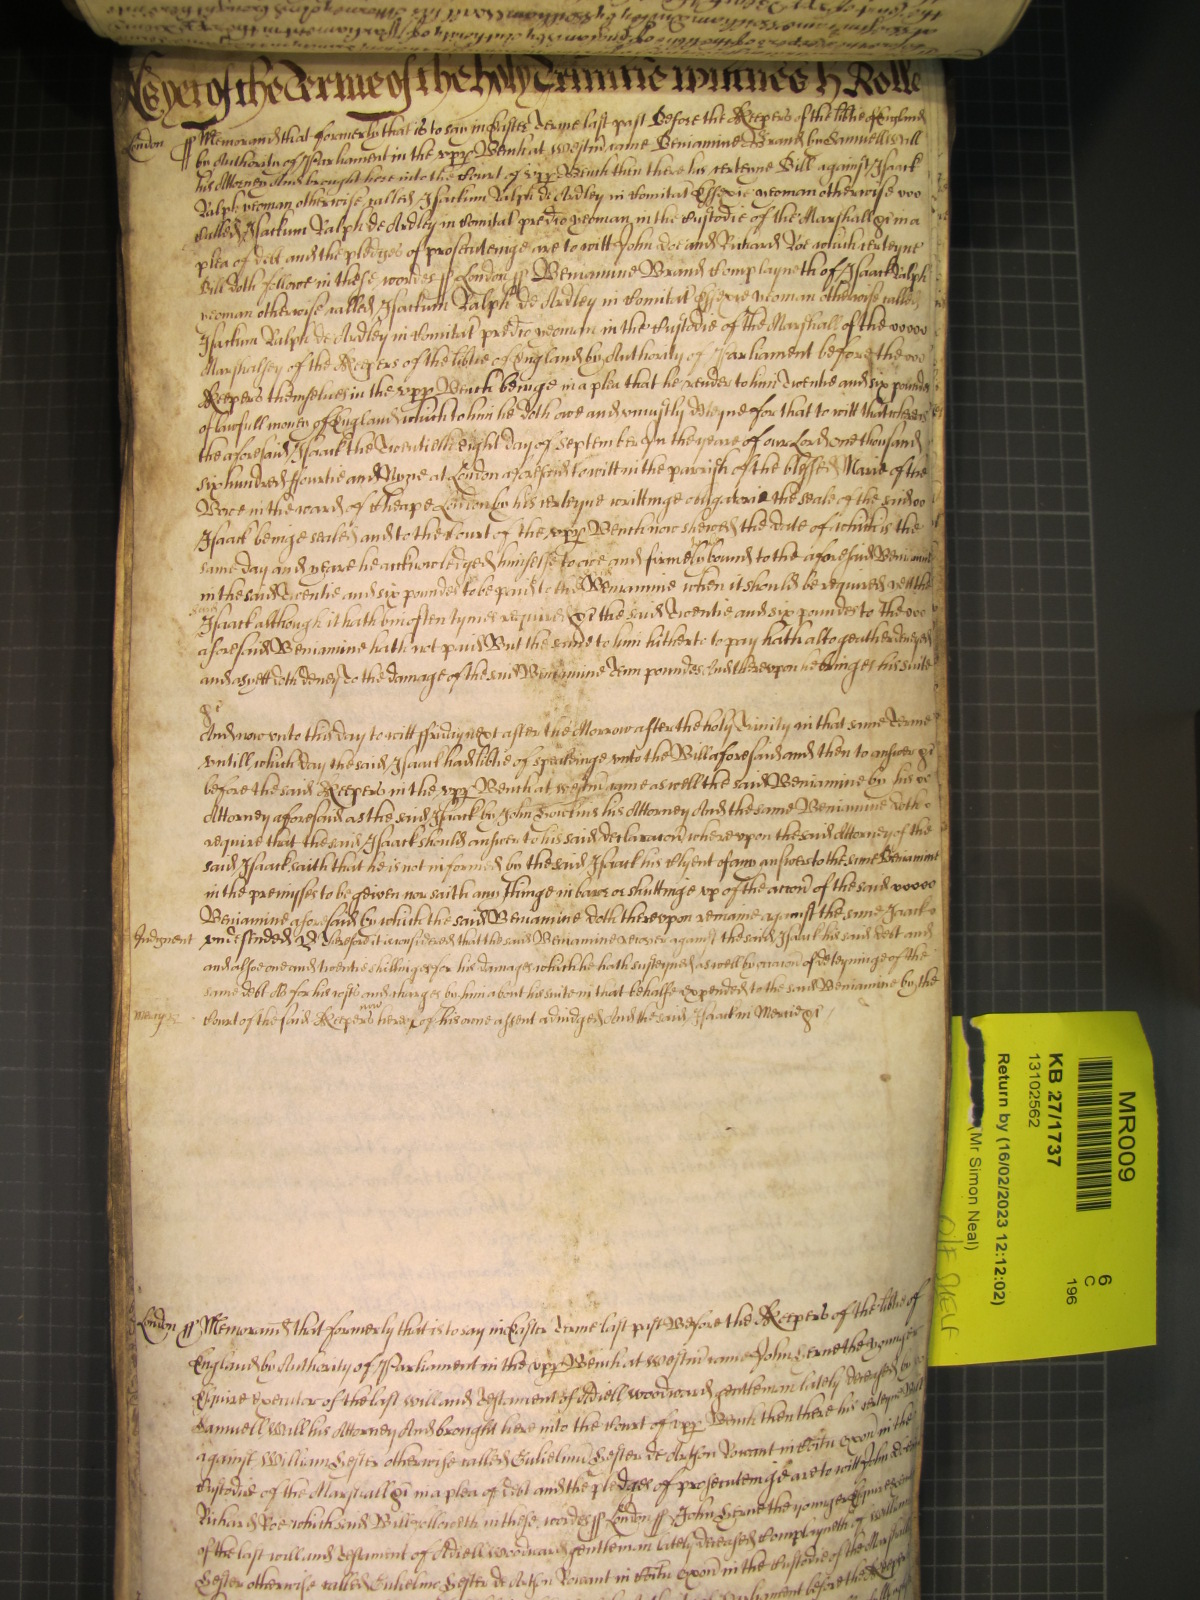 As yet of the Terme of the holy Trinitie wittnes H Rolle
London ss Memorand that formerly that is to say in Easter Terme last past Before the Keepers of the libtie of England
by Authority of Parliament in the upp Bench at Westm came Beniamine Brand by Samuell Will
his Attorney And brought here into the Court of upp Bench then there his certeyne Bill against Isaack
Ralph yeoman otherwise called Isackum Ralph de Ardley in Comitat Essexie yeoman otherwise
called Isackum Ralph de Ardley in Comitat predco yeoman in the Custodie of the Marshall &c in a
plea of debt and the pledges of prosecuteinge are to witt John Doe and Richard Roe which certeyne
Bill doth followe in these wordes ss London ss Beniamine Brand Complayneth of Isaack Ralph
yeoman otherwise called Isackum Ralph de Ardley in Comitat Essexie yeoman otherwise called
Isackum Ralph de Ardley in Comitat predco yeoman in the Custodie of the Marshall of the
Marshalsey of the Keepers of the libtie of England by Authority of Parliament before the
Keepers themselves in the upp Bench beinge in a plea that he render to him Twentie and six poundes
of lawfull money of England which to him he doth owe and uniustly deteyne for that to witt that whereas
the aforesaid Isaack the Twentieth eight day of September In the yeare of our Lord one thousand
six hundred ffourtie and Nyne at London aforesaid to witt in the parrish of the blessed Marie of the
Bowe in the ward of Cheape London by his certeyne writtinge obligatorie the seale of the said
Isaack beinge sealed and to the Court of the upp Bench now shewed the date of which is the
same day and yeare he acknowledged himselfe to owe and firmely bound to the aforesaid Beniamine
in the said Twentie and six poundes to be paid to the Beniamine when it should be required yett the
said
Isaack although it hath bin often tymes required &c the said Twentie and six poundes to the
aforesaid Beniamine hath not paid But the same to him hitherto to pay hath altogeather denyed
and as yett doth deney To the damage of the said Beniamine Tenn poundes And thereupon he bringes his suite
&c
And now unto this day to witt ffriday next after the Morrow after the holy Trinity in that same Terme
untill which day the said Isaack had libtie of speakinge unto the Bill aforesaid and then to answer &c
before the said Keepers in the upp Bench at Westm came as well the said Beniamine by his
Attorney aforesaid as the said Isaack by John his Attorney And the same Beniamine doth
require that the said Isaack should answer to his said declaracon whereupon the said Attorney of the
said Isaack saith that he is not informed by the said Isaack his Clyent of any answer to the same Beniamine
in the premisses to be geven nor saith any thinge in barre or shuttinge up of the accon of the said
Beniamine aforesaid by which the said Beniamine doth thereupon remaine against the same Isaack
Judgment undefended &c Therefore it is considered that the said Beniamine recover against the said Isaack his said debt and
and alsoe one and twentie shillinges for his damages which he hath susteyned as well by occacon of deteyninge of the
same debt As for his costs and charges by him about his suite in that behalfe expended to the said Beniamine by the
now
Mercy &c Court of the said Keepers here of his owne assent adiudged And the said Isaack in Mercie &c
London ss Memorand that formerly that is to say in Easter Terme last past Before the Keepers of the libtie of
England by Authority of Parliament in the upp Bench at Westm came John Lerne the younger
Esquire executor of the last will and Testament of Adiell Woodward gentleman lately deceased by
Samuell Will his Attorney And brought here into the Court of upp Bench then there his certeyne Bill
against William Sester otherwise called Gulielmu Sester de Aston Rowant in Com Oxon in the
Custodie of the Marshall &c in a plea of debt and the pledges of prosecuteinge are to witt John Doe
Richard Roe which said Bill followeth in these wordes ss London ss John Lerne the younger Esquire
of the last will and Testament of Adiell Woodward gentleman lately deceased Complayneth of William
Sester otherwise called Gulielmo Sester de Aston Rowant in Com Oxon in the Custodie of the Marshall
before the Keepers
MR009
6
C
196
KB 27/1737
13102562
Return by (16/02/2023 12:12:02)
(Mr Simon Neal)
O/F SHELF